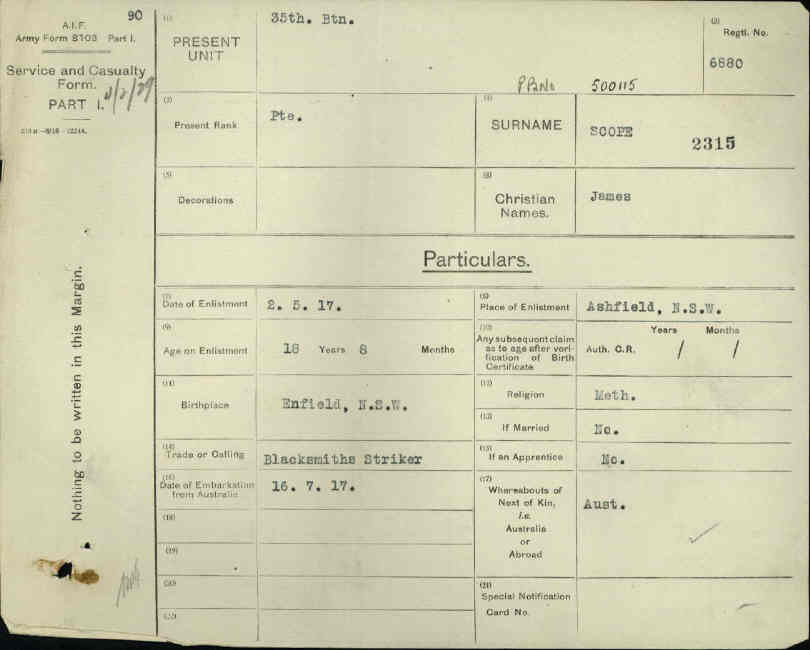 90
A.I.F.
Army Form B103 Part I.
Service and Casualty
Form.
PART I.
(1)
PRESENT
UNIT
35th. Btn.
(2)
Regtl. No.
6880
500115
(3)
Present Rank
Pte.
(4)
SURNAME
SCOPE
2315
(5)
Decorations
(6)
Christian
Names.
James
Particulars.
(7)
Date of Enlistment
2. 5. 17.
(8)
Place of Enlistment
Ashfield, N.S.W.
(9)
Age on Enlistment
18 Years 8 Months
(10)
Any subsequent claim
as to age after veri-
fication of Birth
Certificate
Years Months
Auth. C.R. / /
(11)
Birthplace
Enfield, N.S.W.
(12)
Religion
Meth.
(13)
If Married
No.
(14)
Trade or Calling
Blacksmiths Striker
(15)
If an Apprentice
No.
(16)
Date of Embarkation
from Australia
16. 7. 17.
(17)
Whereabouts of
Next of Kin,
i.e.
Australia
or
Abroad
Aust.
(18)
(19)
(20)
(21)
Special Notification
Card No.
Nothing to be written in this Margin.